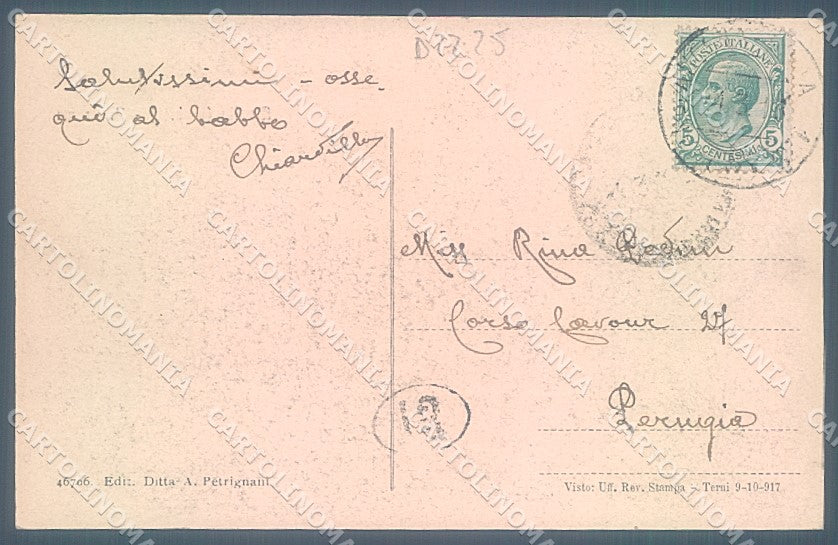 D 1225
Salutissimi - osse
qui al babbo
Chiarilla
POSTE ITALIANE
5
CENTESIMI
5
Miss Rina
Corso Cavour
Perugia
46766. Ediz. Ditta A. Petrignani.
Visto: Uff. Rev. Stampa - Terni 9-10-917
CARTOLINOMANIA